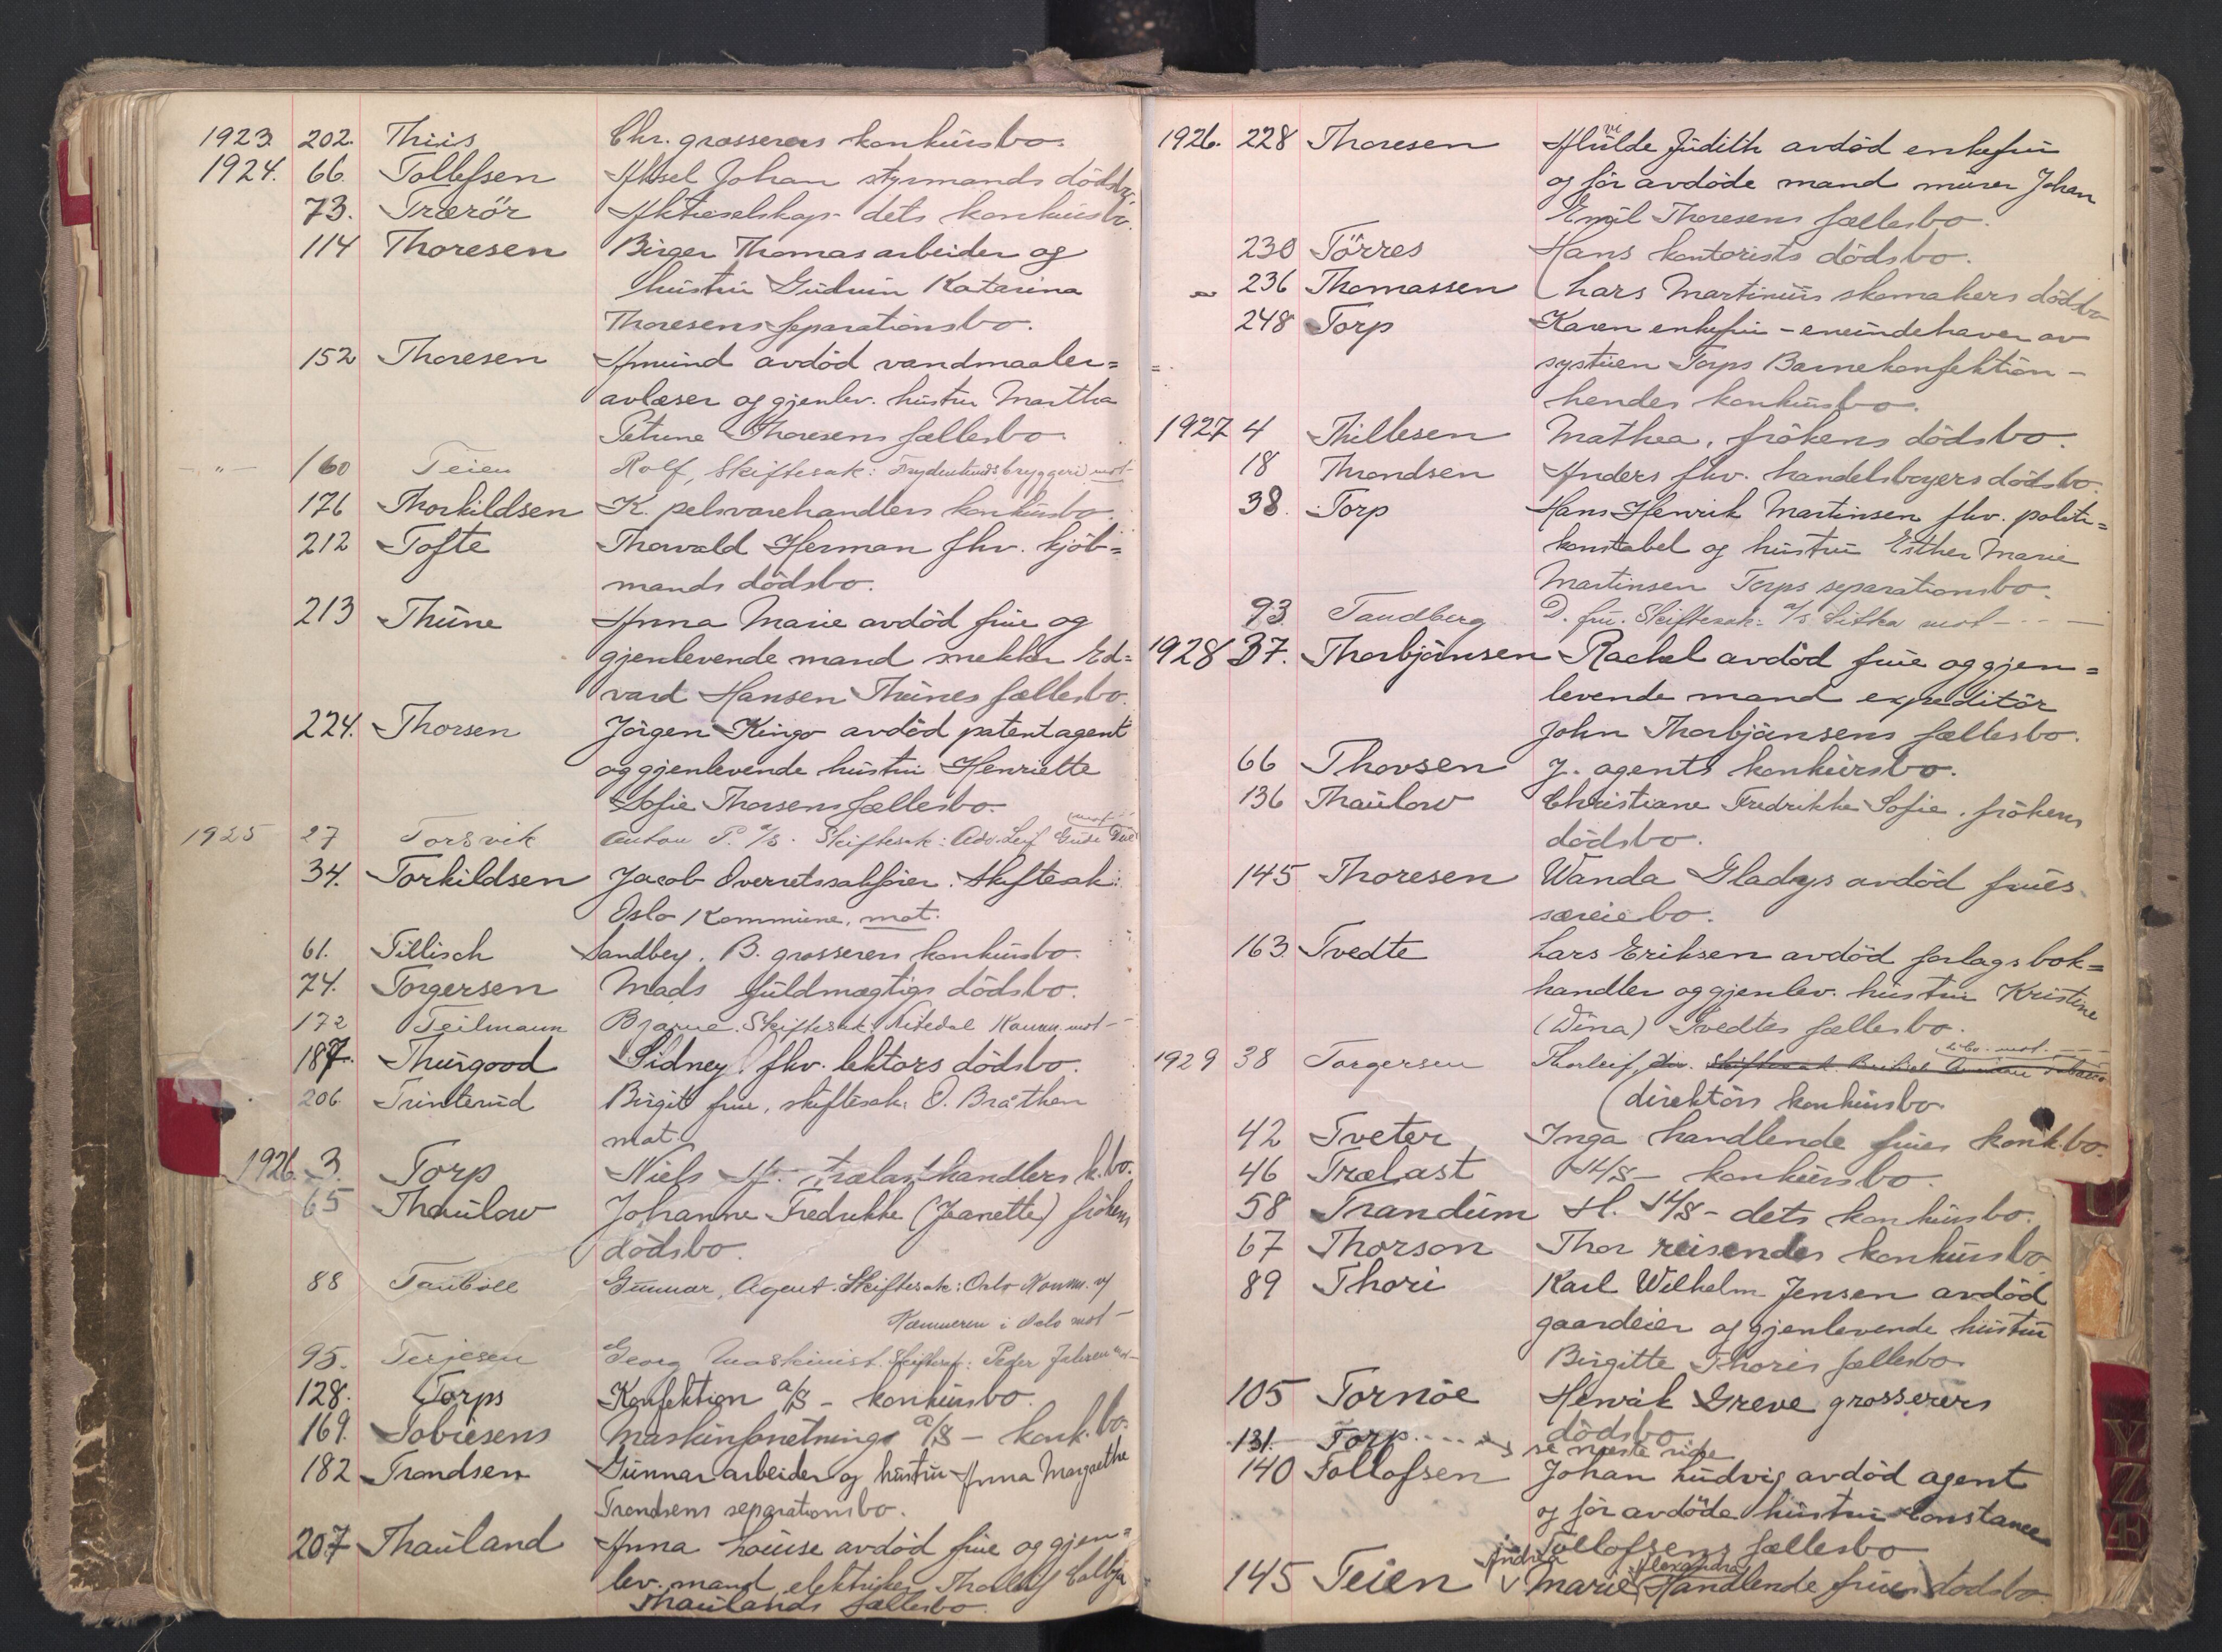 1923 202. Thiis Chr. grosserers konkursbo.
1924. 66. Tollefsen Aksel Johan styrmands dödsbo.
73. Trærör Aktieselskap - dets konkursbo.
114 Thoresen Birger Thomas arbeider og
hustru Gudrun Katarina
Thoresens separationsbo.
152 Thoresen Amund avdöd vandmaaler=
avlæser og gjenlev. hustru Martha
Petrine Thoresens fællesbo.
— " — 160 Teien Rolf, Skiftesak: Frydenlunds bryggeri mot —
176 Thorkildsen K. pelsvarehandlers konkursbo.
212 Tofte Thorvald Herman fhv. kjöb=
mands dödsbo.
213 Thune Anna Marie avdöd frue og
gjenlevende mand snekker Ed=
vard Hansen Thunes fællesbo.
224. Thorsen Jörgen Kingo avdöd patentagent
og gjenlevende hustru Henriette
Sofie Thorsens fællesbo.
1925 27 Torsvik Anton P. a/s. Skiftesak: Adv. Leif Gude Due (mot —
34. Torkildsen Jacob Overretssakförer. Skiftesak:
Oslo Kommune, mot.
61. Tillisch Sandberg. B. grosserers konkursbo.
74. Torgersen Mads fuldmægtigs dödsbo.
172 Teilmann Bjarne. Skiftesak: Nitedal Komm. mot —
187. Thurgood Sidney fhv. lektors dödsbo.
206 Trinterud Birgit frue, skiftesak: O. Bråthen
mot.
1926. 3. Torp Niels A. trælasthandlers k.bo.
65 Thaulow Johanne Fredrikke (Jeanette) frökens
dödsbo.
88 Tauböll Gunnar, Agent. Skiftesak: Oslo Komm. v/
Kæmneren i Oslo mot —
95. Terjesen Georg Maskinist. Skiftesak: Peder Johnsen mot —
128. Torps Konfektion a/s - konkursbo.
169. Tobiesens Maskinforretning a/s - konk.bo.
182 Trondsen Gunnar arbeider og hustru Anna Margrethe
Trondsens separationsbo.
207 Thauland Anna Louise avdöd frue og gjen=
lev. mand elektriker Thorleif
Thaulands fællesbo.
1926. 228 Thoresen Hulde Judith avdöd enkefru
og för avdöde mand murer Johan
Emil Thoresens fællesbo.
230 Törres Hans kontorists dödsbo.
236 Thomassen Lars Martinius skomakers dödsbo
248 Torp Karen enkefru - eneindehaver av
systuen Torps Barnekonfektion -
hendes konkursbo.
1927 4 Thillesen Mathea, frökens dödsbo.
18 Throndsen Anders fhv. handelsborgers dödsbo.
38. Torp Hans Henrik Martinsen fhv. politi=
konstabel og hustru Esther Marie
Martinsen Torps separationsbo.
93. Tandberg D. fru. Skiftesak: a/s Sitka mot - - -
1928 37. Thorbjörnsen Rachel avdöd frue og gjen=
levende mand expeditör
John Thorbjörnsens fællesbo.
66 Thorsen J. agents konkursbo.
136 Thaulow Christiane Fredrikke Sofie. frökens
dödsbo.
145 Thoresen Wanda Gladys avdöd frues
særeiebo.
163. Tvedte Lars Eriksen avdöd forlagsbok=
handler og gjenlev. hustru Kristine
(Dina) Tvedtes fællesbo.
1929 38 Torgersen Thorleif, dir. Skiftesak: British American Tobacco Co. mot. —
(direktörs konkursbo.
42 Tveter Inga handlende frues konk.bo.
46 Trælast A/S - konkursbo.
58 Trandum H. A/S - dets konkursbo.
67 Thorson Thor reisendes konkursbo.
89 Thori Karl Wilhelm Jensen avdöd
gaardeier og gjenlevende hustru
Birgitte Thoris fællesbo
105 Tornöe Henrik Greve grosserers
dödsbo
131. Torp..... se næste side
140 Tollofsen Johan Ludvig avdöd agent
og för avdöde hustru Constance
Tollofsens fællesbo
145 Teien Andrea Marie Alexandra Handlende frues dödsbo.
Y
Z
Æ